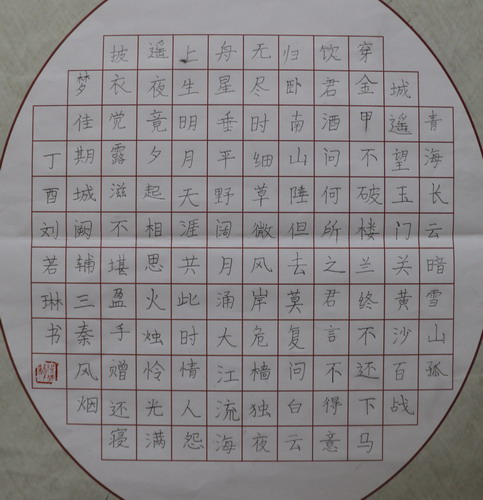 青海长云暗雪山孤
城遥望玉门关黄沙百战
穿金甲不破楼兰终不还下马
饮君酒问何所之君言不得意
归卧南山陲但去莫复问白云
无尽时细草微风岸危樯独夜
舟星垂平野阔月涌大江流海
上生明月天涯共此时情人怨
遥夜竟夕起相思火烛怜光满
披衣觉露滋不堪盈手赠还寝
梦佳期城阙辅三秦风烟
丁酉刘若琳书